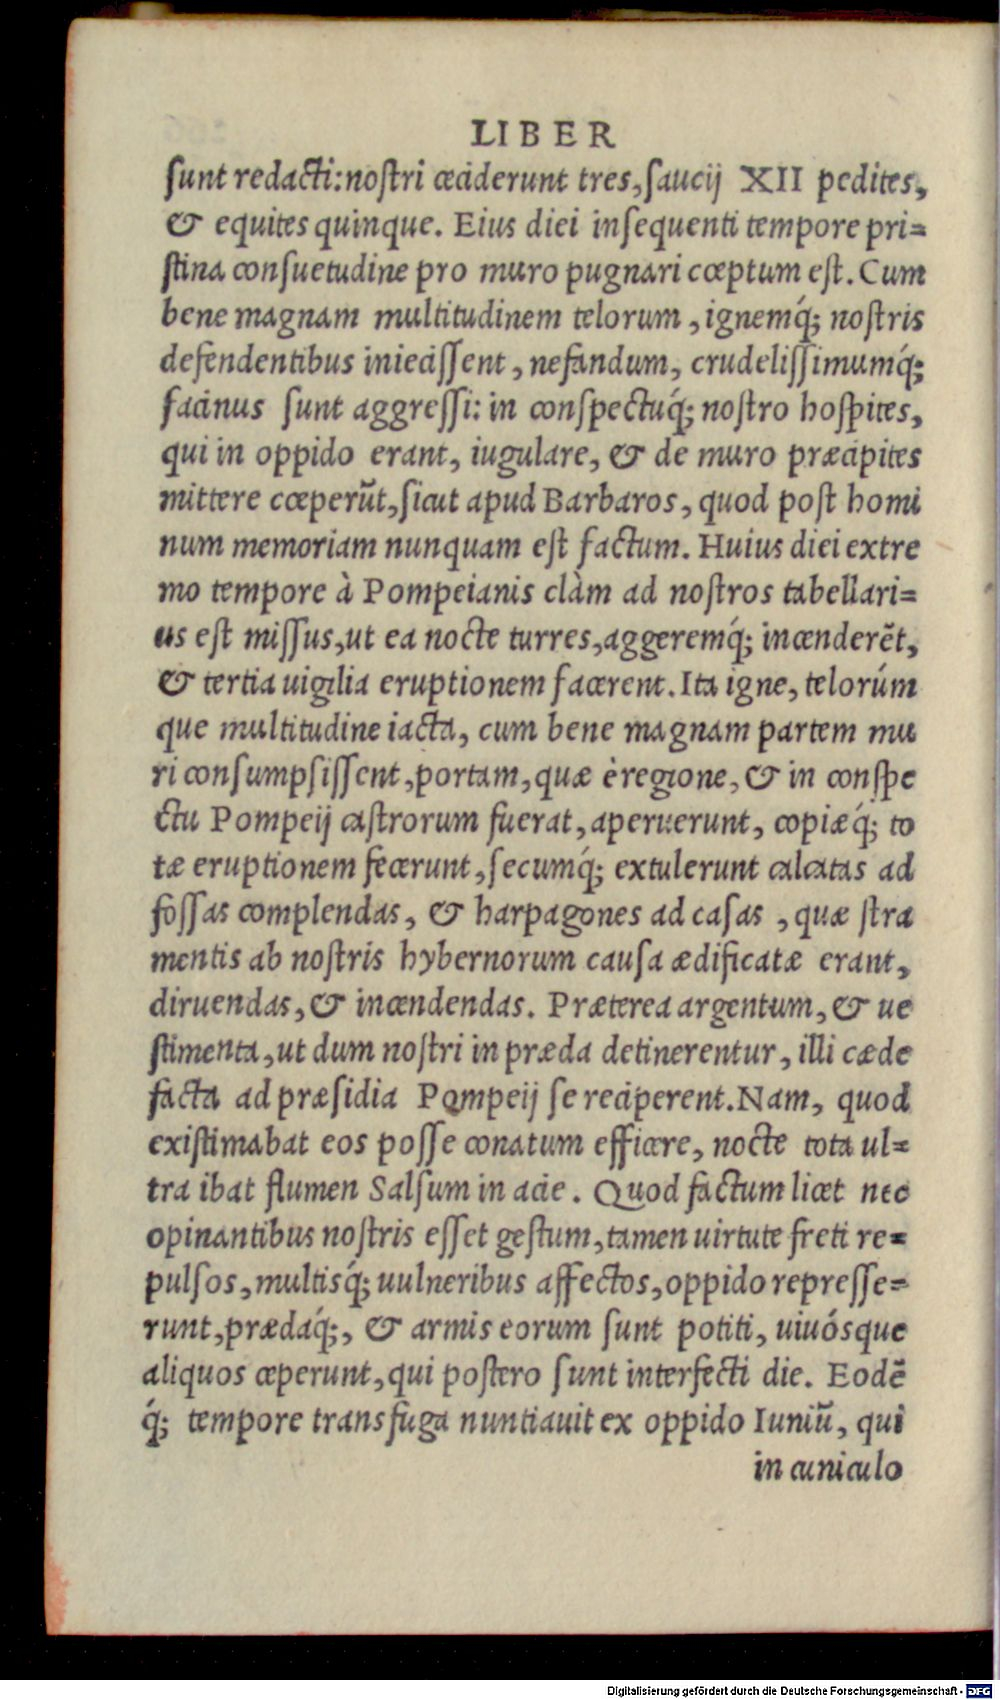 LIBER
ſunt redacti: noſtri ceciderunt tres, ſaucij XII pedites,
& equites quinque. Eius diei inſequenti tempore pri=
ſtina conſuetudine pro muro pugnari cœptum eſt. Cum
bene magnam multitudinem telorum, ignemq́; noſtris
defendentibus inieciſſent, nefandum, crudeliſſimumq́;
facinus ſunt aggreſſi: in conſpectuq́; noſtro hoſpites,
qui in oppido erant, iugulare, & de muro præcipites
mittere cœperūt, ſicut apud Barbaros, quod poſt homi
num memoriam nunquam eſt factum. Huius diei extre
mo tempore à Pompeianis clàm ad noſtros tabellari=
us eſt miſſus, ut ea nocte turres, aggeremq́; incenderēt,
& tertia uigilia eruptionem facerent. Ita igne, telorúm
que multitudine iacta, cum bene magnam partem mu
ri conſumpſiſſent, portam, quæ è regione, & in conſpe
ctu Pompeij caſtrorum fuerat, aperuerunt, copiæq́; to
tæ eruptionem fecerunt, ſecumq́; extulerunt calcatas ad
foſſas complendas, & harpagones ad caſas, quæ ſtra
mentis ab noſtris hybernorum cauſa ædificatæ erant,
diruendas, & incendendas. Præterea argentum, & ue
ſtimenta, ut dum noſtri in præda detinerentur, illi cæde
facta ad præſidia Pompeij ſe reciperent. Nam, quod
exiſtimabat eos poſſe conatum efficere, nocte tota ul=
tra ibat flumen Salſum in acie. Quod factum licet nec
opinantibus noſtris eſſet geſtum, tamen uirtute freti re=
pulſos, multisq́; uulneribus affectos, oppido repreſſe=
runt, prædaq́;, & armis eorum ſunt potiti, uiuósque
aliquos ceperunt, qui poſtero ſunt interfecti die. Eodē
q́; tempore transfuga nuntiauit ex oppido Iuniū, qui
in cuniculo
Digitalisierung gefördert durch die Deutsche Forschungsgemeinschaft - DFG